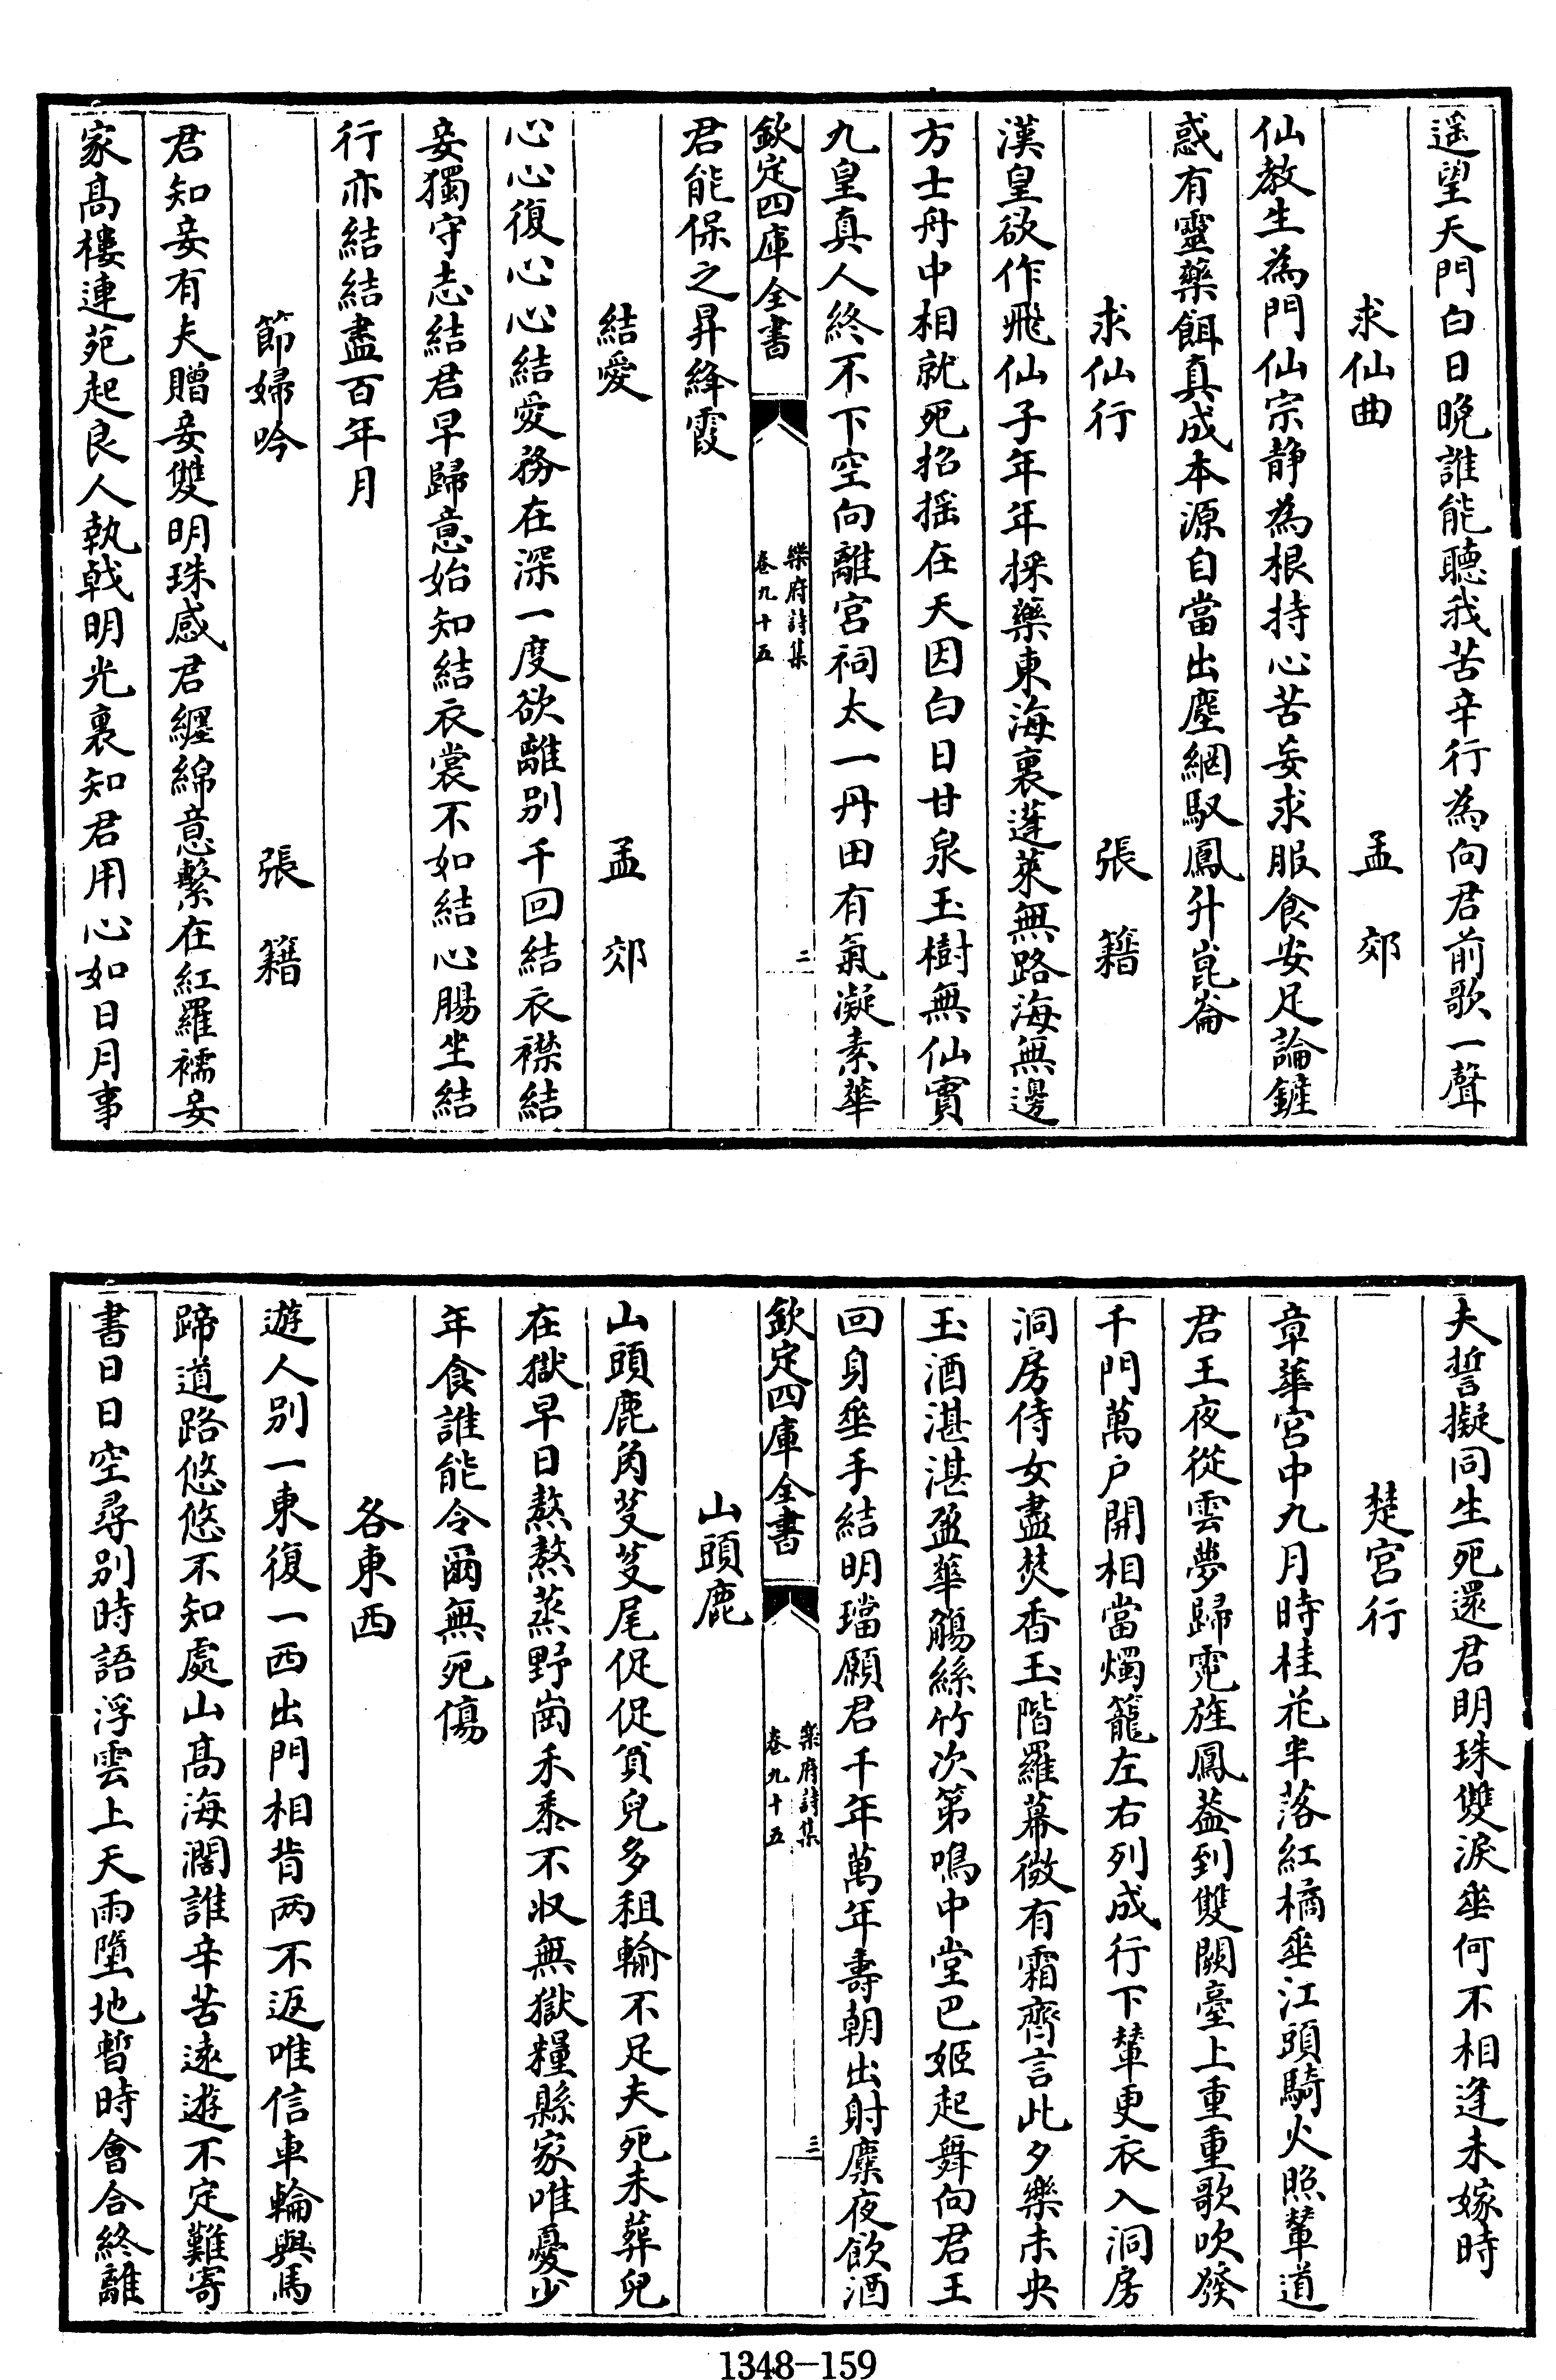 遥望天門白日晚誰能聽我苦辛行為向君前歌一聲
求仙曲　孟郊
仙教生為門仙宗静為根持心苦妄求服食安足論鏟
惑有靈藥餌真成本源自當出塵網馭鳳升崑崙
求仙行　張籍
漢皇欲作飛仙子年年採藥東海裏蓬萊無路海無邊
方士舟中相就死招摇在天因白日甘泉玉樹無仙實
九皇真人終不下空向離宮祠太一丹田有氣凝素華
欽定四庫全書
樂府詩集
卷九十五
二
君能保之昇絳霞
結愛　孟郊
心心復心心結愛務在深一度欲離别千回結衣襟結
妾獨守志結君早歸意始知結衣裳不如結心腸坐結
行亦結結盡百年月
節婦吟　張籍
君知妾有夫贈妾雙明珠感君纏綿意繫在紅羅襦妾
家髙樓連苑起良人執戟明光裏知君用心如日月事
夫誓擬同生死還君明珠雙淚垂何不相逢未嫁時
楚宮行
章華宮中九月時桂花半落紅橘垂江頭騎火照輦道
君王夜從雲夢歸霓旌鳳葢到雙闕臺上重重歌吹發
千門萬户開相當燭籠左右列成行下輦更衣入洞房
洞房侍女盡焚香玉階羅幕微有霜齊言此夕樂未央
玉酒湛湛盈華觴絲竹次第鳴中堂巴姬起舞向君王
回身垂手結明璫願君千年萬年壽朝出射麋夜飲酒
欽定四庫全書
樂府詩集
卷九十五
三
山頭鹿
山頭鹿角芟芟尾促促貧兒多租輸不足夫死未葬兒
在獄早日熬熬蒸野崗禾黍不収無獄糧縣家唯憂少
年食誰能令爾無死傷
各東西
遊人别一東復一西出門相背两不返唯信車輪與馬
蹄道路悠悠不知處山髙海濶誰辛苦逺遊不定難寄
書日日空尋别時語浮雲上天雨墮地暫時會合終離
1348-159